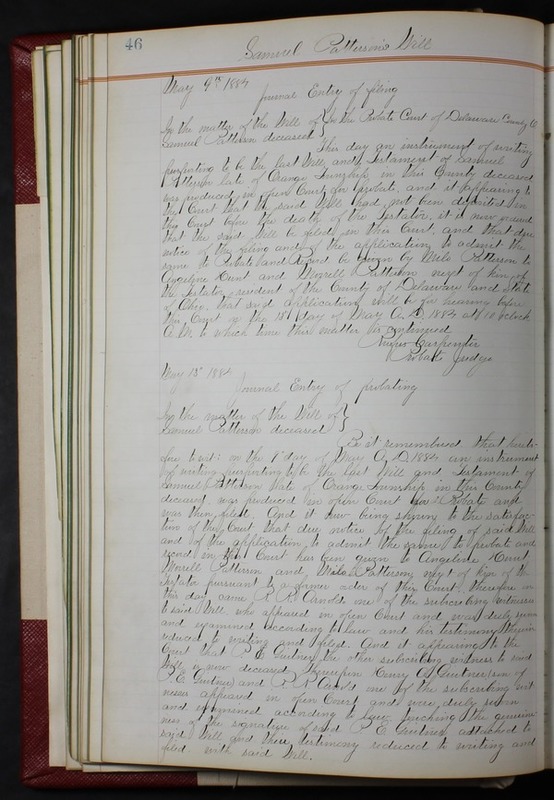 46
Samuel Patterson's Will
May 9th 1884
Journal Entry of filing
In the matter of the Will of } In the Probate Court of Delaware County O
Samuel Patterson deceased }
This day an instrument of writing
purporting to be the last Will and Testament of Samuel
Patterson late of Orange Township in this County deceased
was produced in open Court for probate, and it appearing to
the Court that the said Will had not been deposited in
this Court before the death of the Testator, it is now ordered
that the said Will be filed in this Court, and that due
notice of the filing and of the application to admit the
same to Probate and Record be given by Milo Patterson to
Angeline Hunt and Morrell Patterson next of kin of
the Testator, resident of the County of Delaware and State
of Ohio. That said application will be for hearing before
this Court on the 15th day of May A.D. 1884 at 10 o'clock
A.M. to which time this matter is continued
Rufus Carpenter
Probate Judge
May 15th 1884
Journal Entry of probating
In the matter of the Will of }
Samuel Patterson deceased }
Be it remembered that hereto-
fore to wit: on the 9th day of May A.D. 1884 an instrument
of writing purporting to be the last Will and Testament of
Samuel Patterson late of Orange Township in this County
deceased, was produced in open Court for Probate and
was then filed. And it now being shown to the satisfac-
tion of the Court that due notice of the filing of said Will
and of the application to admit the same to probate and
record in this Court has been given to Angeline Hunt,
Morrell Patterson and Milo Patterson next of kin of the
Testator pursuant to a former order of this Court. Therefore on
this day came P. R. Arnold one of the subscribing witnesses
to said Will who appeared in open Court and was duly sworn
and examined according to law and his testimony therein
reduced to writing and filed. And it appearing to the
Court that P. E. Guitner the other subscribing witness to said
Will is now deceased, Thereupon Henry Guitner son of
P. E. Guitner and P. R. Arnold one of the subscribing wit-
nesses appeared in open Court and were duly sworn
and examined according to law touching the genuine-
ness of the signature of said P. E. Guitner attached to
said Will and their testimony reduced to writing and
filed with said Will.